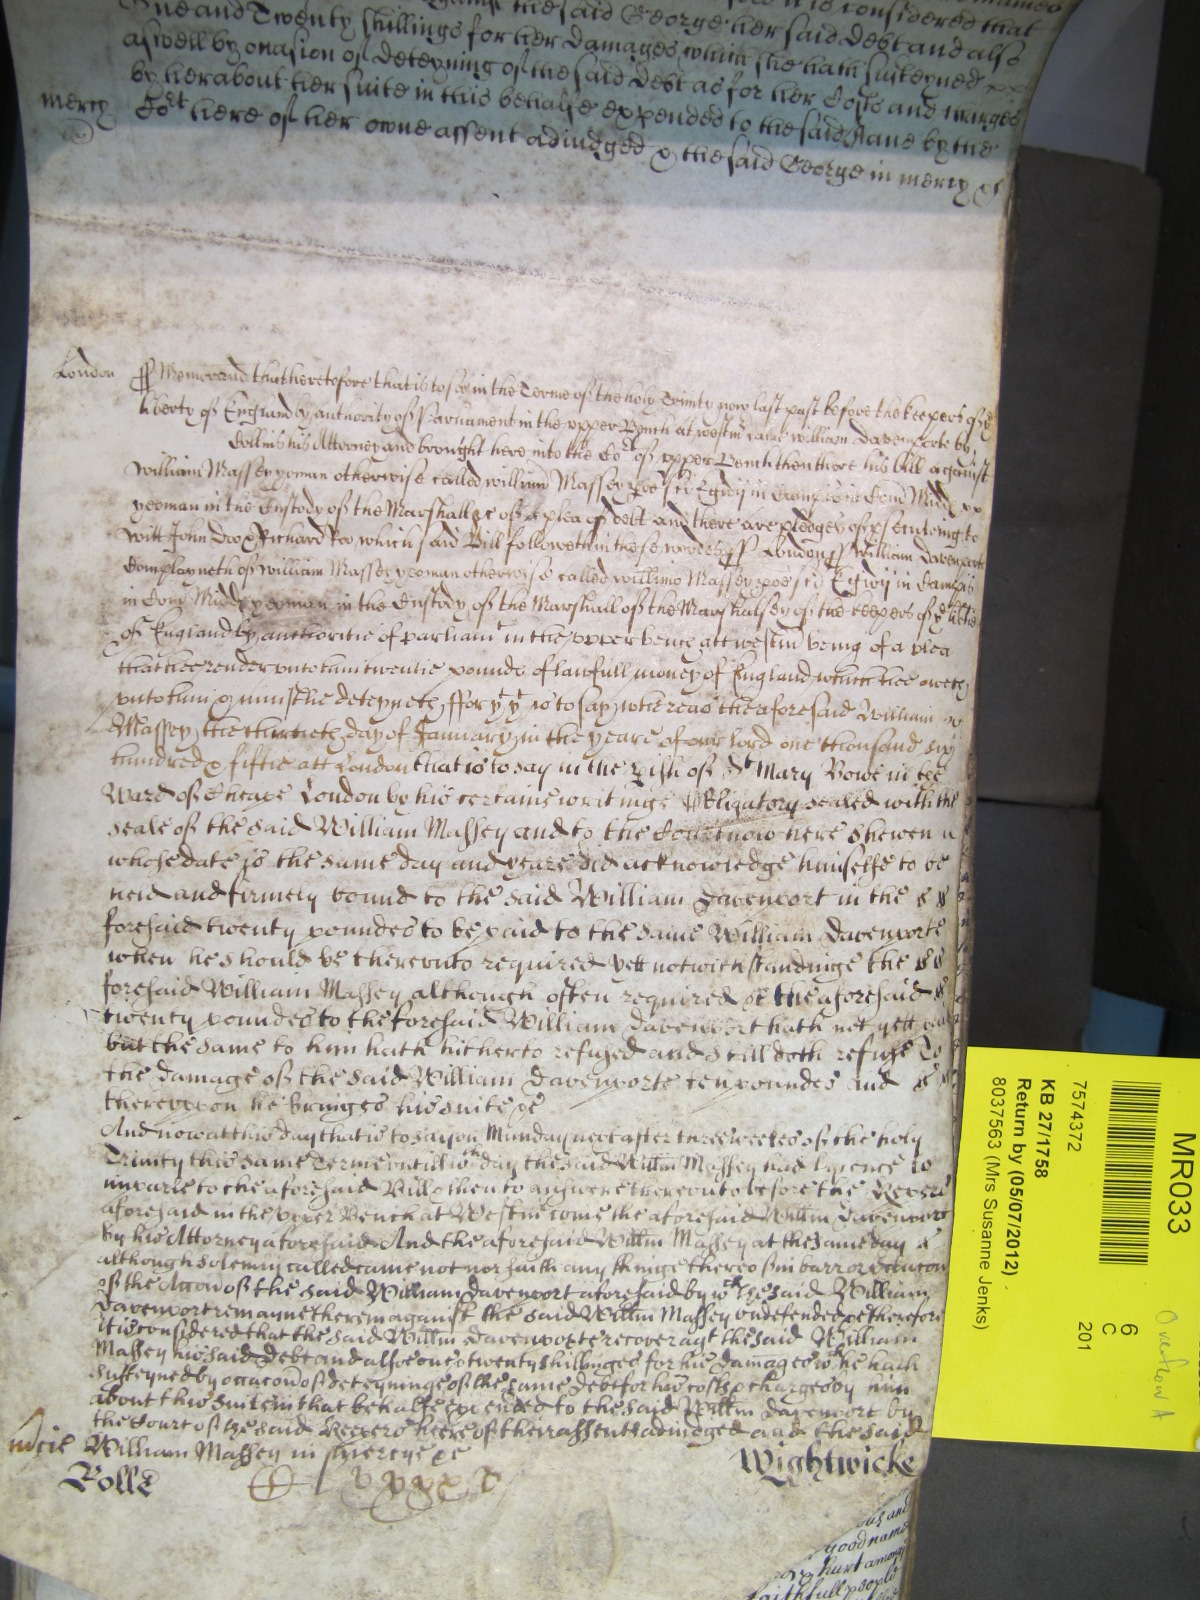 the said George her said Debt and also
One and Twenty shillings for her Damages which she hath susteyned
aswell by occasion of deteyning of the said Debt as for her Costs and charges
by her about her suite in this behalfe expended to the said Jane by the
mercy Cort here of her owne assent adiudged & the said George in mercy &c
London Memorand that heretofore that is to say in the Terme of the holy Trinity now last past before the keepers of ye
liberty of England by authority of Parliament in the upper Bench at westm came william Davenporte by
Collins his Attorney and brought here into the Cort of upper Bench then there his bill against
william Massey yeoman otherwise called william Massey in Com Midd
yeoman in the Custody of the Marshall &c of a plea of debt and there are pledges of psecuting to
witt John Doo & Richard Roo which said Bill followeth in these words London William Davenporte
Complayneth of William Massey yeoman otherwise called Massey in
in Com Midd yeoman in the Custody of the Marshall of the Marshalsey of the keepers of ye libtie
of England by authoritie of parliamt in the upper bench att westm being of a plea
that hee render unto him twentie pounds of lawfull money of England which hee oweth
unto him & uniustlie deteyneth ffor yt yt is to say whereas the aforesaid William
Massey the thirtieth day of January in the yeare of our lord one thousand six
hundred & fiftie att London that is to say in the pish of St Mary Bowe in the
Ward of Cheape London by his certaine writinge Obligatory sealed with the
seale of the said William Massey and to the Court now here shewen
whose date is the same day and yeare did acknowledge himselfe to be
held and firmely bound to the said William Davenport in the
foresaid twenty poundes to be paid to the same William Davenporte
when he should be thereunto required yett notwithstandinge the
foresaid William Massey although often required &c the aforesaid
twenty poundes to the foresaid William Davenport hath not yett
but the same to him hath hitherto refused and still doth refuse To
the damage of the said William Davenporte ten poundes And
thereupon he bringes his suite &c
And now at this day that is to say on Munday next after three weekes of the holy
Trinity this same Terme untill wch day the said Willm Massey had lycence to
imparle to the aforesaid Bill & then to answere thereunto before the Keepers
aforesaid in the upper Bench at Westm come the aforesaid Willm Davenport
by his Attorney aforesaid And the aforesaid Willm Massey at the same day
although solemly called came not nor saith any thinge thereof in barr or
of the Accon of the said William Davenport aforesaid by wch the said William
Davenport remayne therein against the said Willm Massey undefended &c therefore
it is considered that the said Willm Davenporte recover agt the said William
Massey his said Debt and alsoe one & twenty shillinges for his damages wch he hath
susteyned by occacon of deteyninge of the same debt for his costs & charges by him
about this suite in that behalfe expended to the said Willm Davenport by
the Court of the said Keepers heere of their assent adiudged and the said
William Massey in mercye &c
Rolle Wightwicke
and
good name
hurt among
faithfull people
MR033
7574372
6
C
201
KB 27/1758
Return by (05/07/2012)
8037563 (Mrs Susanne Jenks)
Overflow A